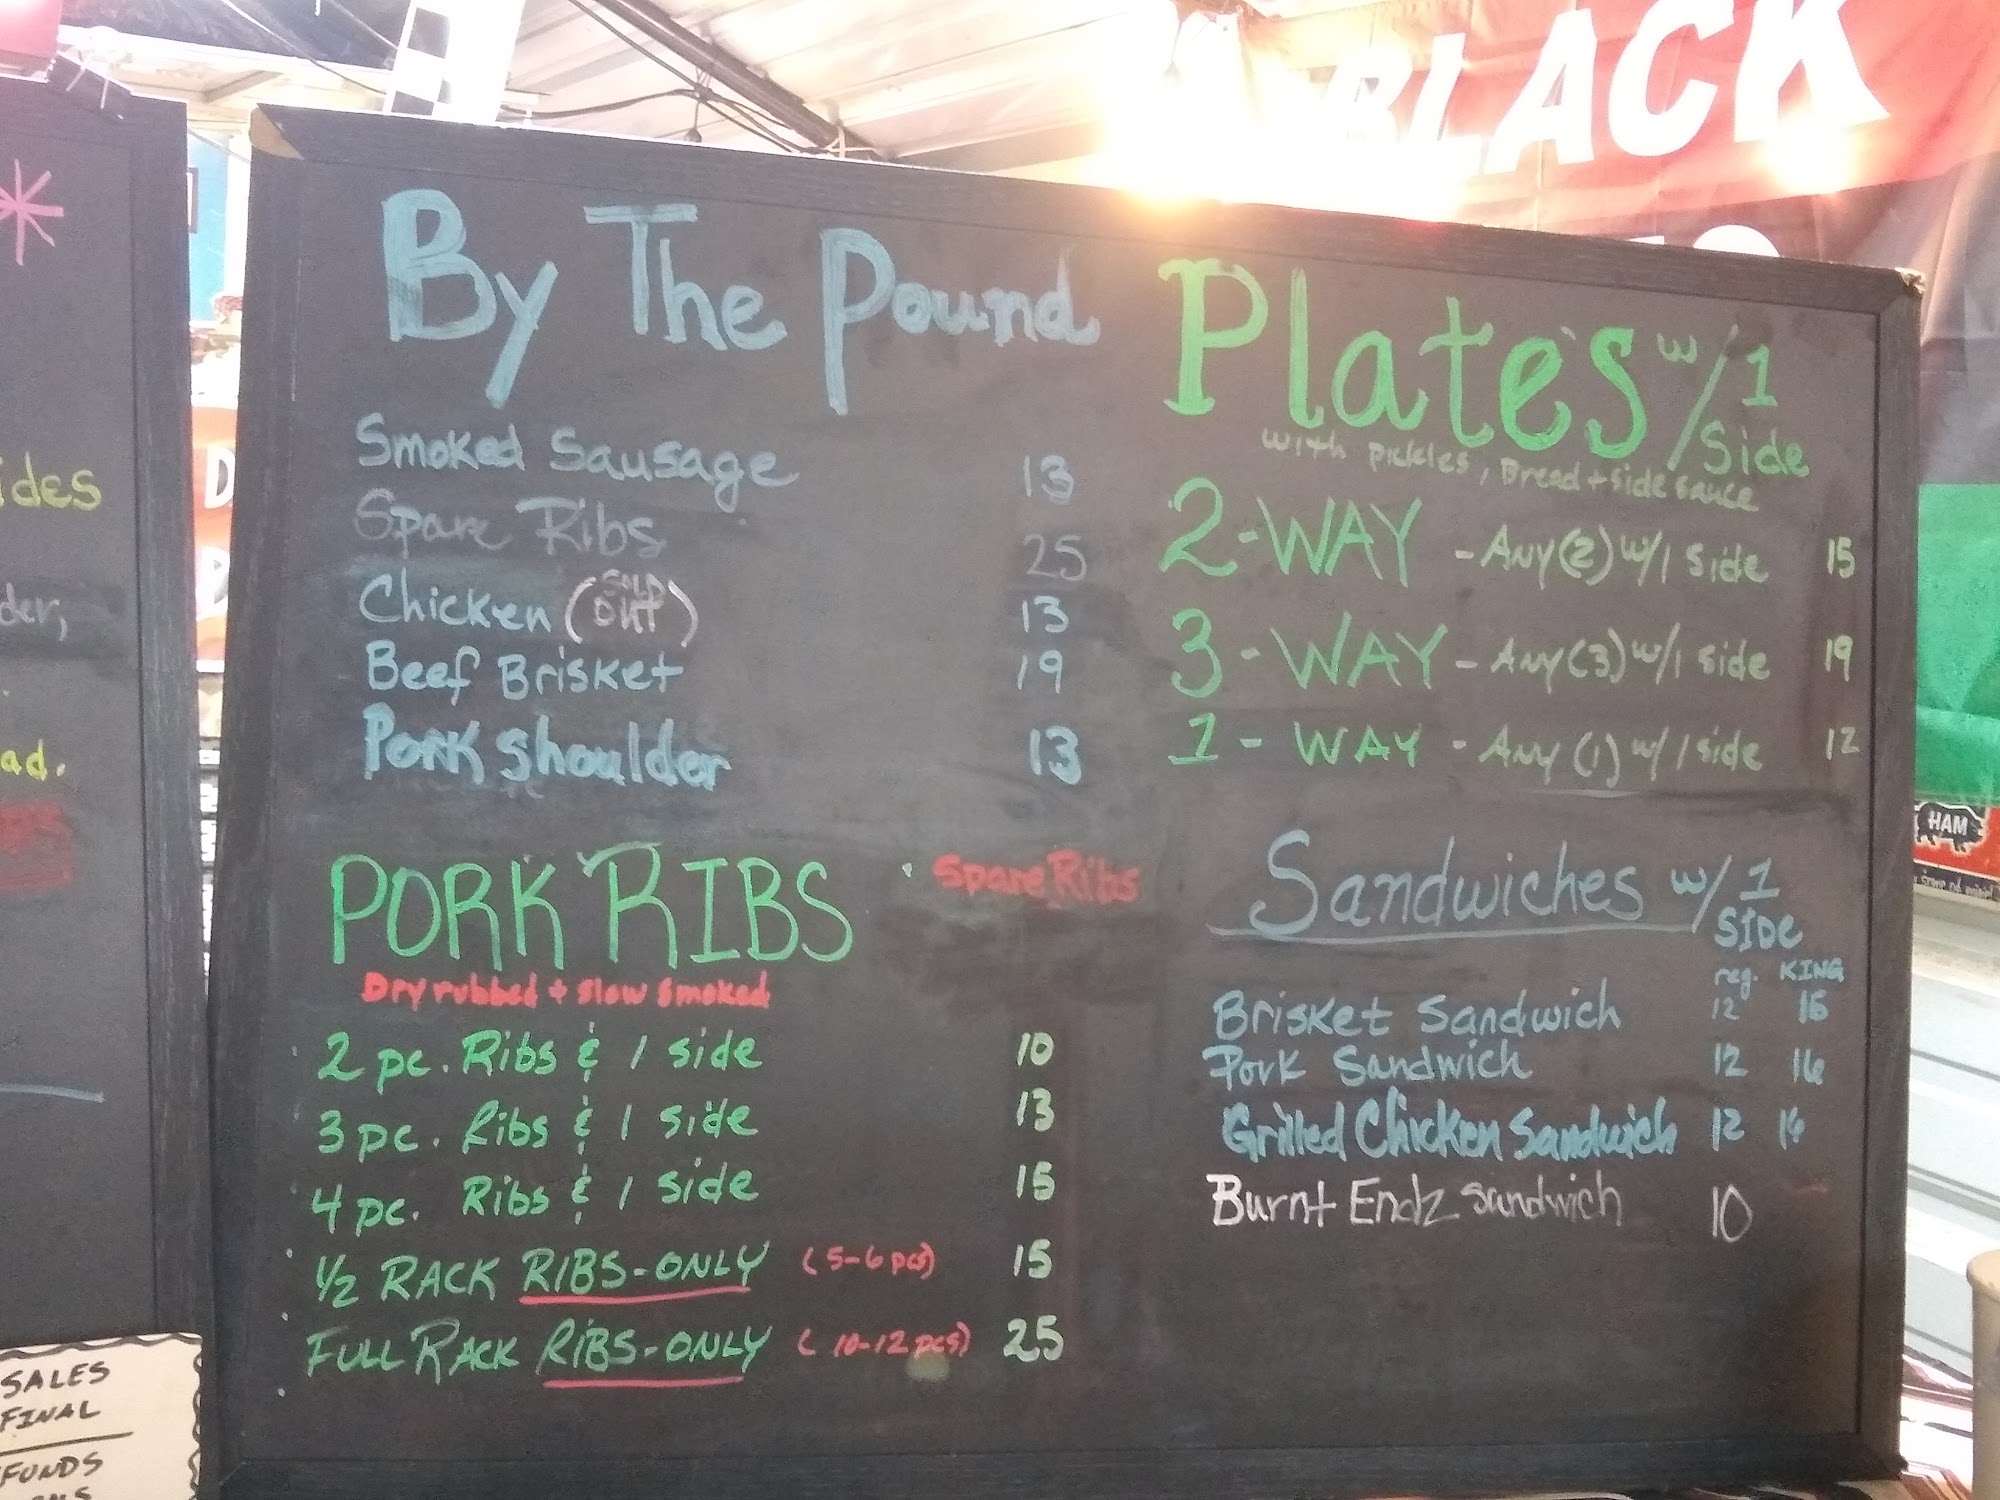 BLACK
ides
der,
ad.
SALES
FINAL
FUNDS
By The Pound
Smoked Sausage 13
Spare Ribs 25
Chicken (SOLD OUT) 13
Beef Brisket 19
Pork Shoulder 13
PORK RIBS Spare Ribs
Dry rubbed + slow smoked
2 pc. Ribs & 1 side 10
3 pc. Ribs & 1 side 13
4 pc. Ribs & 1 side 15
1/2 RACK RIBS-ONLY (5-6 pcs) 15
FULL RACK RIBS-ONLY (10-12 pcs) 25
Plates w/1 Side
with pickles, Bread + side sauce
2-WAY - Any (2) w/1 side 15
3-WAY - Any (3) w/1 side 19
1-WAY - Any (1) w/1 side 12
Sandwiches w/1 SIDE
reg. KING
Brisket Sandwich 12 16
Pork Sandwich 12 16
Grilled Chicken Sandwich 12 16
Burnt Endz Sandwich 10
HAM